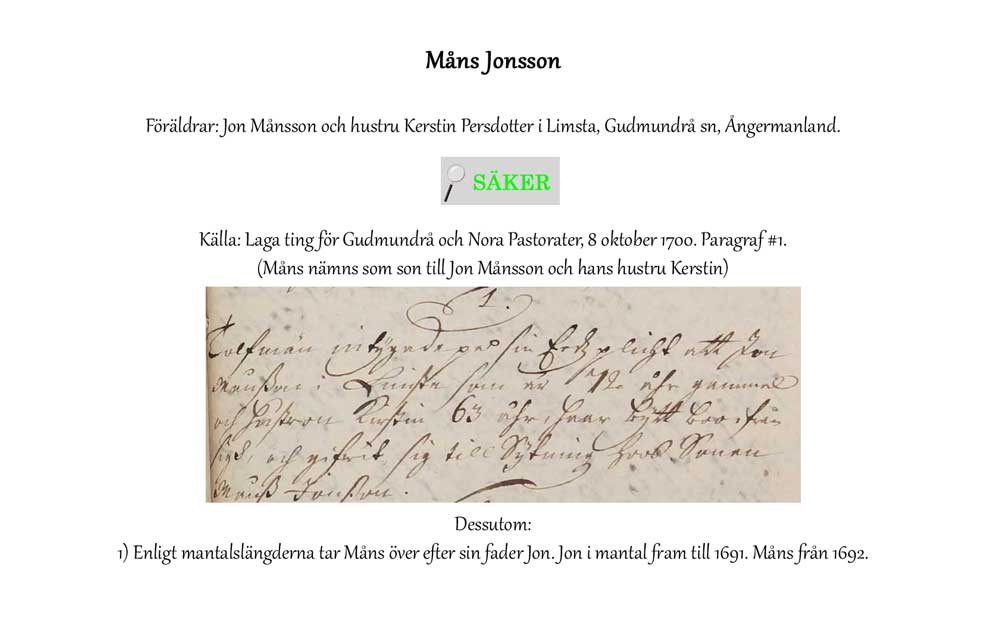 Måns Jonsson
Föräldrar: Jon Månsson och hustru Kerstin Persdotter i Limsta, Gudmundrå sn, Ångermanland.
SÄKER
Källa: Laga ting för Gudmundrå och Nora Pastorater, 8 oktober 1700. Paragraf #1.
(Måns nämns som son till Jon Månsson och hans hustru Kerstin)
1.
Tolfmän intygade på sin Eedz plicht att Jon
Månßon i som är 72 åhr gammal
och hustron Kirstin 63 åhr, haar bytt boo ifrån
sigh, och gifvit sig till Sÿtning hoos Sonen
Månß Jonßon.
Dessutom:
1) Enligt mantalslängderna tar Måns över efter sin fader Jon. Jon i mantal fram till 1691. Måns från 1692.